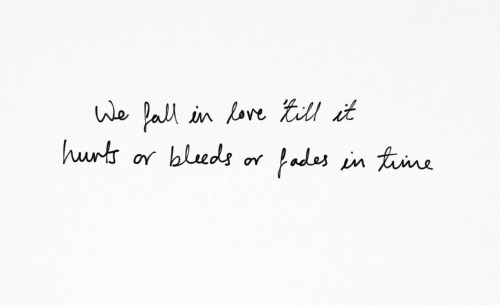 We fall in love 'till it
hurts or bleeds or fades in time